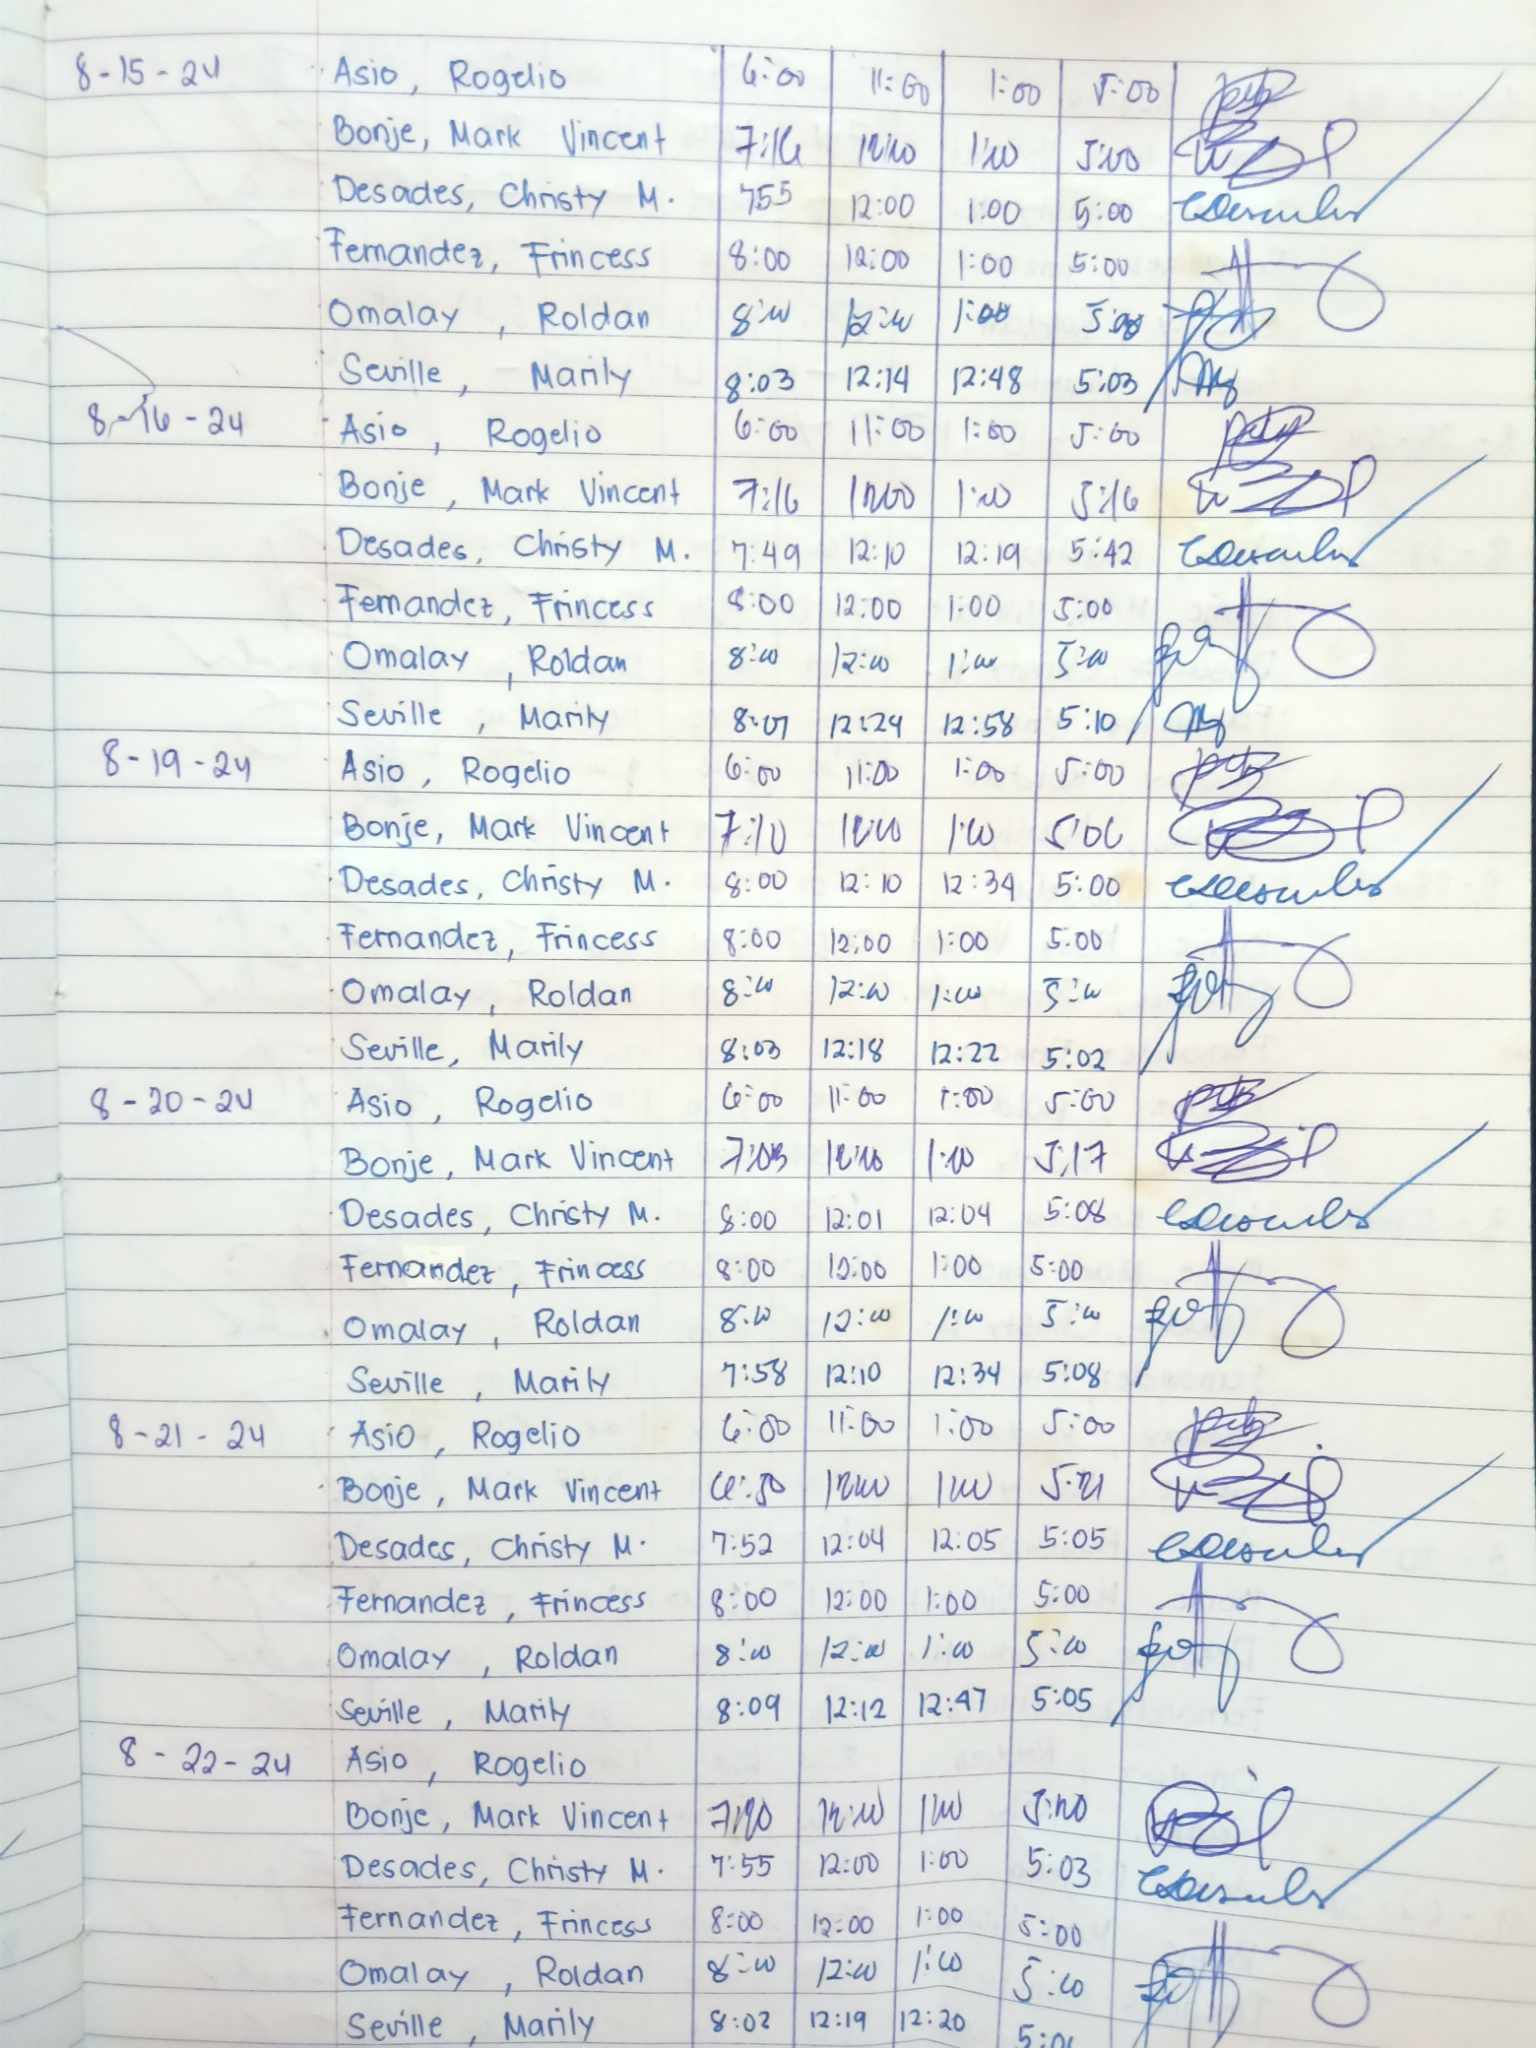 8-15-24 Asio, Rogelio 6:00 11:00 1:00 5:00
Bonje, Mark Vincent 7:16 12:00 1:00 5:00
Desades, Christy M. 755 12:00 1:00 5:00
Fernandez, Frincess 8:00 12:00 1:00 5:00
Omalay, Roldan 8:00 12:00 1:00 5:00
Seville, Marily 8:03 12:14 12:48 5:03
8-16-24 Asio, Rogelio 6:00 11:00 1:00 5:00
Bonje, Mark Vincent 7:16 12:00 1:00 5:16
Desades, Christy M. 7:49 12:10 12:19 5:42
Fernandez, Frincess 8:00 12:00 1:00 5:00
Omalay, Roldan 8:00 12:00 1:00 5:00
Seville, Marily 12:24 12:58 5:10
8-19-24 Asio, Rogelio 6:00 11:00 1:00 5:00
Bonje, Mark Vincent 7:10 12:00 1:00
Desades, Christy M. 8:00 12:10 12:34 5:00
Fernandez, Frincess 8:00 12:00 1:00 5:00
Omalay, Roldan 8:00 12:00 1:00 5:00
Seville, Marily 8:03 12:18 12:22 5:02
8-20-24 Asio, Rogelio 6:00 11:00 1:00 5:00
Bonje, Mark Vincent 7:03 12:00 1:00 5:17
Desades, Christy M. 8:00 12:01 12:04 5:08
Fernandez, Frincess 8:00 12:00 1:00 5:00
Omalay, Roldan 8:00 12:00 1:00 5:00
Seville, Marily 7:58 12:10 12:34 5:08
8-21-24 Asio, Rogelio 6:00 11:00 1:00 5:00
Bonje, Mark Vincent 6:50 12:00 1:00
Desades, Christy M. 7:52 12:04 12:05 5:05
Fernandez, Frincess 8:00 12:00 1:00 5:00
Omalay, Roldan 8:00 12:00 1:00 5:00
Seville, Marily 8:09 12:12 12:47 5:05
8-22-24 Asio, Rogelio
Bonje, Mark Vincent 12:00 1:00
Desades, Christy M. 7:55 12:00 1:00 5:03
Fernandez, Frincess 8:00 12:00 1:00 5:00
Omalay, Roldan 8:00 12:00 1:00 5:00
Seville, Marily 8:02 12:19 12:20